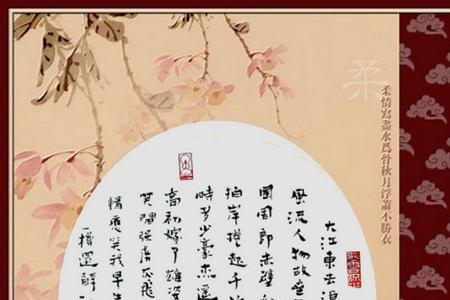 柔
柔情寫盡水爲骨秋月浮蕭不勝衣
大江東去浪
風流人物故壘
國周郎赤壁
拍岸捲起千
時多少豪杰遙
喬初嫁了雄姿
笑間強虜灰飛
情應笑我早生
一樽還酹